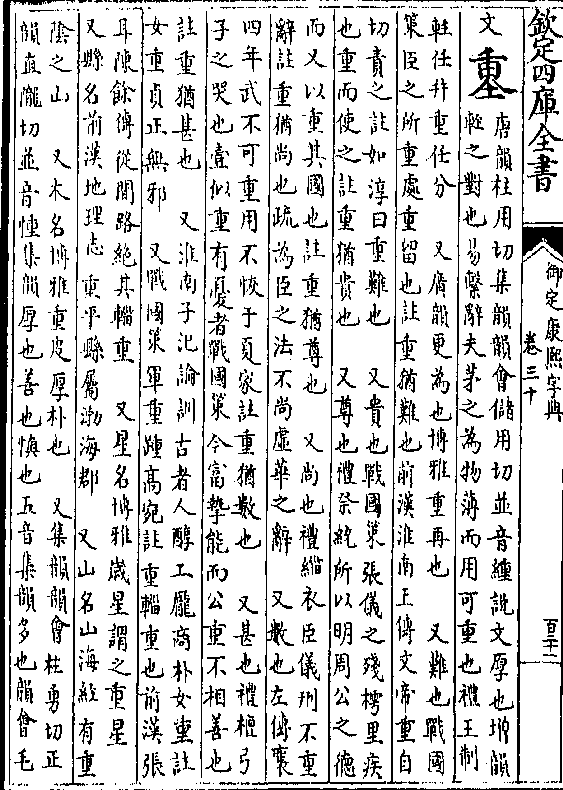 欽定四庫全書
御定康熙字典
卷三十
百三十一
文
重
唐韻柱用切集韻韻會儲用切並音緟說文厚也增韻
輕之對也易繫辭夫茅之為物薄而用可重也禮王制
輕任并重任分　又廣韻更為也博雅重再也　又難也戰國
策臣之所重處重留也註重猶難也前漢淮南王傳文帝重自
切責之註如淳曰重難也　又貴也戰國策張儀之殘樗里疾
也重而使之註重猶貴也　又尊也禮祭統所以明周公之德
而又以重其國也註重猶尊也　又尚也禮緇衣臣儀行不重
辭註重猶尚也疏為臣之法不尚虛華之辭　又數也左傳襄
四年武不可重用不恢于夏家註重猶數也　又甚也禮檀弓
子之哭也壹似重有憂者戰國策今富摯能而公重不相善也
註重猶甚也　又淮南子氾論訓古者人醇工龐商朴女重註
女重貞正無邪　又戰國策軍重踵高宛註重輜重也前漢張
耳陳餘傳從間路絕其輜重　又星名博雅歲星謂之重星
又縣名前漢地理志重平縣屬渤海郡　又山名山海經有重
陰之山　又木名博雅重皮厚朴也　又集韻韻會柱勇切正
韻直隴切並音㣫集韻厚也善也慎也五音集韻多也韻會毛